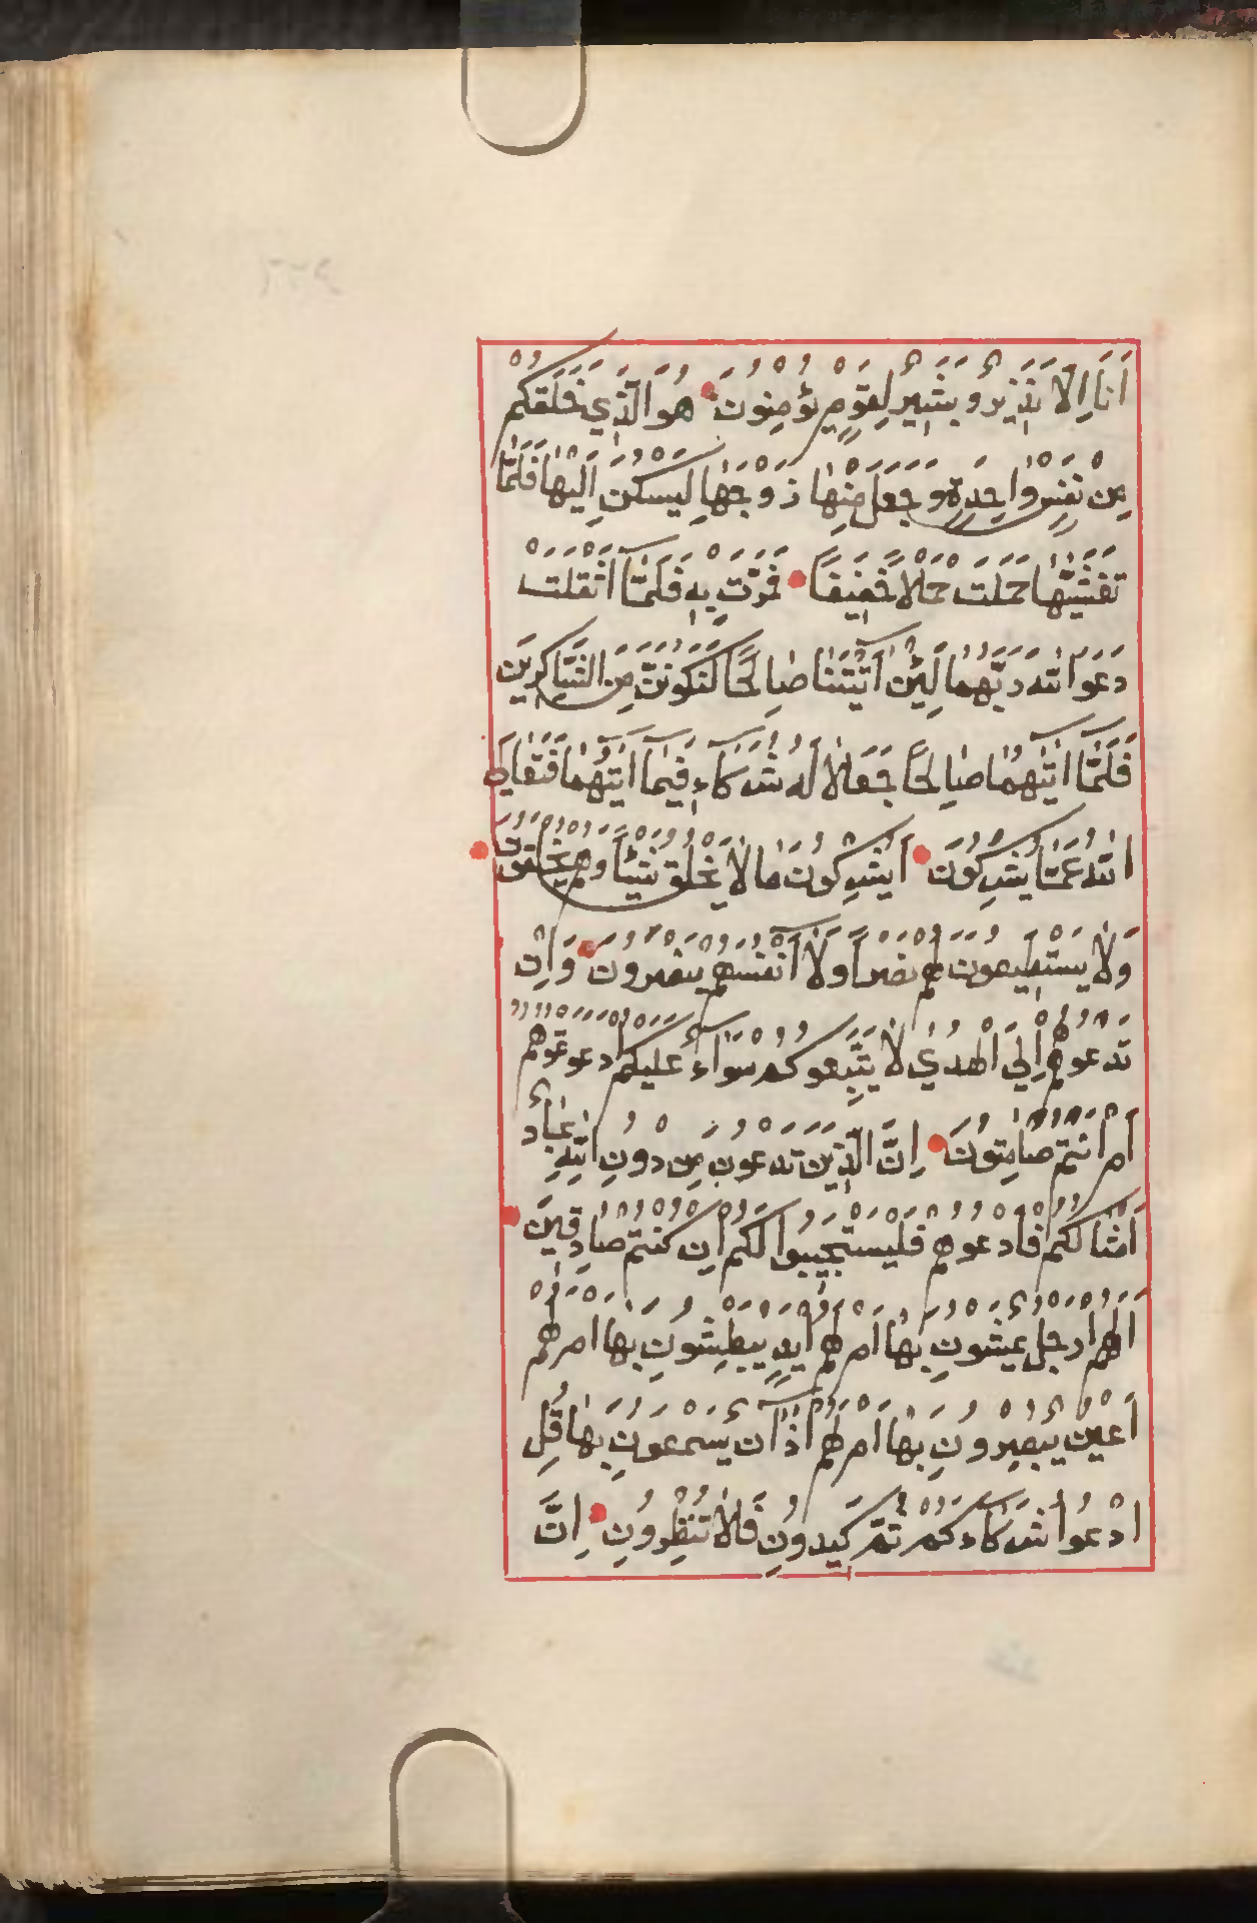 اَنَا اِلَّا نَذِيرٌ وَبَشِيرٌ لِقَوْمٍ يُؤْمِنُونَ هُوَ الَّذِي خَلَقَكُمْ
مِنْ نَفْسٍ وَاحِدَةٍ وَجَعَلَ مِنْهَا زَوْجَهَا لِيَسْكُنَ اِلَيْهَا فَلَمَّا
تَغَشَّيٰهَا حَمَلَتْ حَمْلًا خَفِيفًا فَمَرَّتْ بِهِ فَلَمَّا اَثْقَلَتْ
دَعَوَا اللّٰهَ رَبَّهُمَا لَئِنْ اٰتَيْتَنَا صَالِحًا لَنَكُونَنَّ مِنَ الشَّاكِرِينَ
فَلَمَّا اٰتٰيهُمَا صَالِحًا جَعَلَا لَهُ شُرَكَاءَ فِيمَا اٰتٰيهُمَا فَتَعَالَى
اللّٰهُ عَمَّا يُشْرِكُونَ اَيُشْرِكُونَ مَا لَا يَخْلُقُ شَيْئًا وَهُمْ يُخْلَقُونَ
وَلَا يَسْتَطِيعُونَ لَهُمْ نَصْرًا وَلَا اَنْفُسَهُمْ يَنْصُرُونَ وَاِنْ
تَدْعُوهُمْ اِلَى الْهُدٰي لَا يَتَّبِعُوكُمْ سَوَاءٌ عَلَيْكُمْ اَدَعَوْتُمُوهُمْ
اَمْ اَنْتُمْ صَامِتُونَ اِنَّ الَّذِينَ تَدْعُونَ مِنْ دُونِ اللّٰهِ عِبَادٌ
اَمْثَالُكُمْ فَادْعُوهُمْ فَلْيَسْتَجِيبُوا لَكُمْ اِنْ كُنْتُمْ صَادِقِينَ
اَلَهُمْ اَرْجُلٌ يَمْشُونَ بِهَا اَمْ لَهُمْ اَيْدٍ يَبْطِشُونَ بِهَا اَمْ لَهُمْ
اَعْيُنٌ يُبْصِرُونَ بِهَا اَمْ لَهُمْ اٰذَانٌ يَسْمَعُونَ بِهَا قُلِ
ادْعُوا شُرَكَاءَكُمْ ثُمَّ كِيدُونِ فَلَا تُنْظِرُونِ اِنَّ